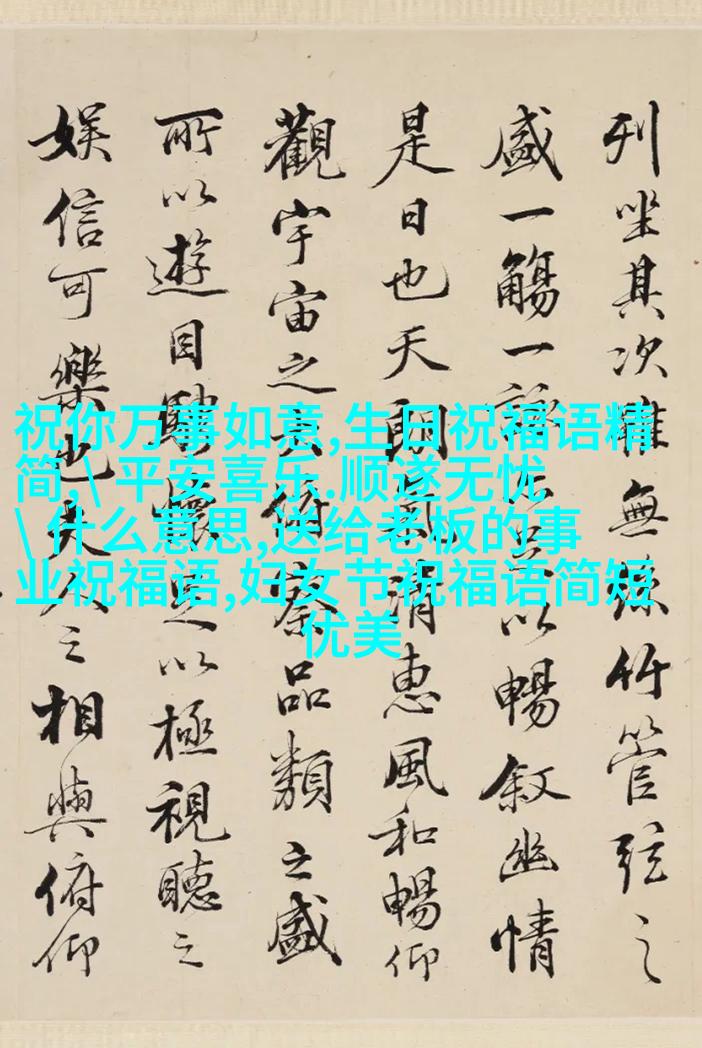 祝你万事如意,生日祝福语精
简,\ 平安喜乐.顺遂无忧
\ 什么意思,送给老板的事
业祝福语,妇女节祝福语简短
优美
列坐其次雖無絲竹管弦之
盛一觴一詠亦足以暢叙幽情
是日也天朗氣清惠風和暢仰
觀宇宙之大俯察品類之盛
所以遊目騁懷足以極視聽之
娛信可樂也夫人之相與俯仰